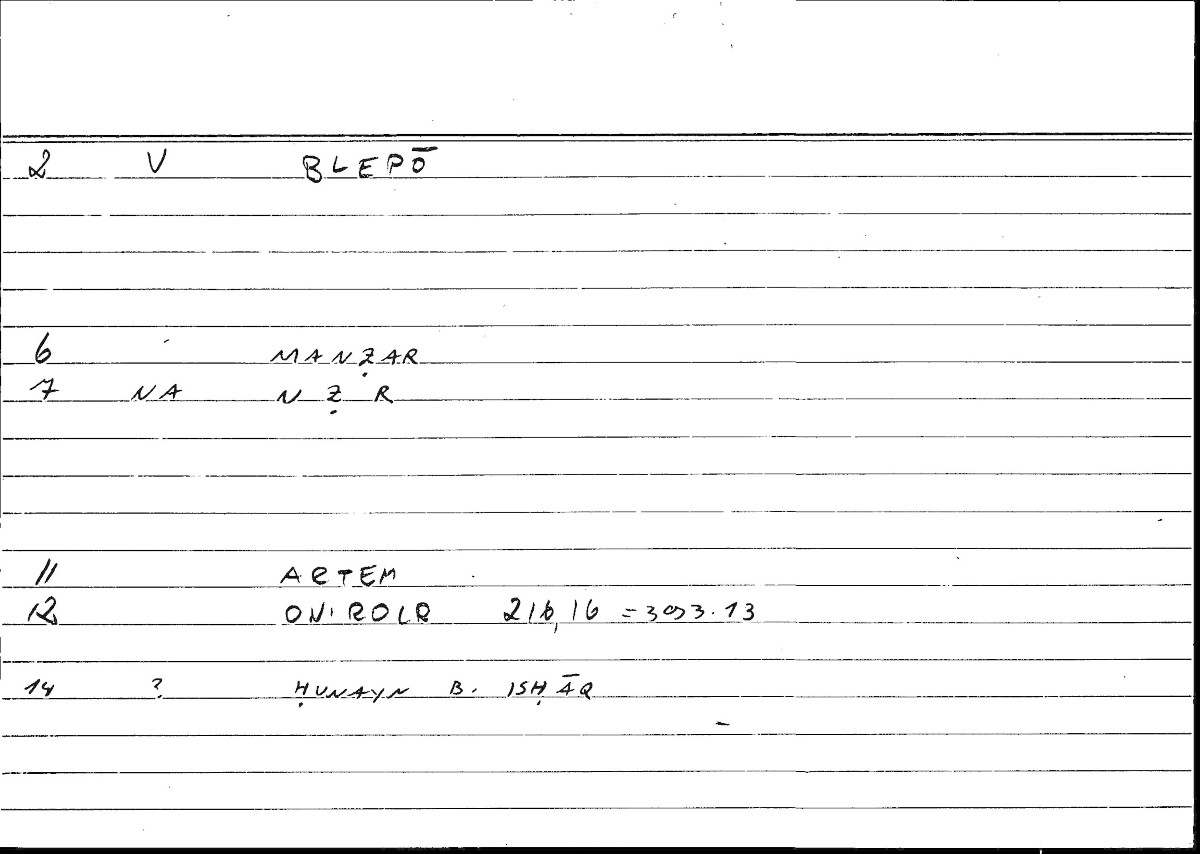 2 V BLEPŌ
6 MANẒAR
7 NA N Ẓ R
11 ARTEM
12 ONIROCR 216,16 = 393.13
14 ? ḤUNAYN B. ISḤĀQ